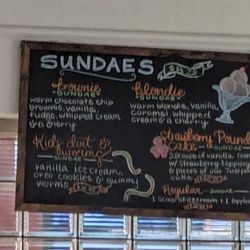 SUNDAES
brownie
SUNDAE
warm chocolate chip
brownie, vanilla,
fudge, whipped cream
& a cherry
blondie
SUNDAE
warm blondie, vanilla,
caramel, whipped
cream & a cherry
Kids dirt &
worms
SUNDAE
vanilla ice cream,
oreo cookies & gummy
worms
Strawberry Pound
Cake SUNDAE
2 scoops of vanilla, topped
w/ Strawberry
pieces of our
cake
Regular SUNDAE
1 scoop of ice cream + 1 topping